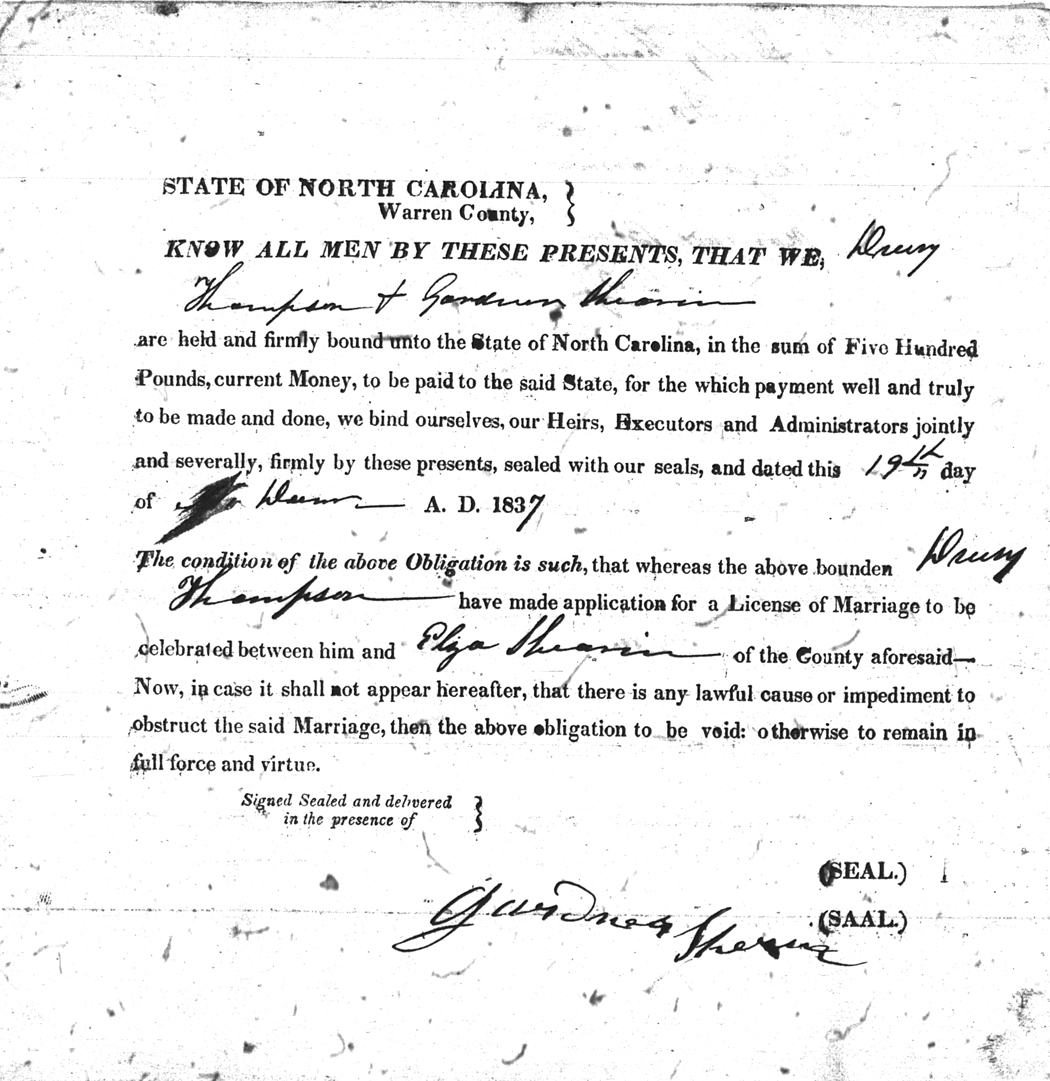 STATE OF NORTH CAROLINA,
Warren County,
KNOW ALL MEN BY THESE PRESENTS, THAT WE, Drury
Thompson + Gardner Shearin
are held and firmly bound unto the State of North Carolina, in the sum of Five Hundred
Pounds, current Money, to be paid to the said State, for the which payment well and truly
to be made and done, we bind ourselves, our Heirs, Executors and Administrators jointly
and severally, firmly by these presents, sealed with our seals, and dated this 19th day
of A. D. 1837
The condition of the above Obligation is such, that whereas the above bounden Drury
Thompson have made application for a License of Marriage to be
celebrated between him and Eliza Shearin of the County aforesaid—
Now, in case it shall not appear hereafter, that there is any lawful cause or impediment to
obstruct the said Marriage, then the above obligation to be void: otherwise to remain in
full force and virtue.
Signed Sealed and delivered
in the presence of
(SEAL.)
(SAAL.)
Gardner